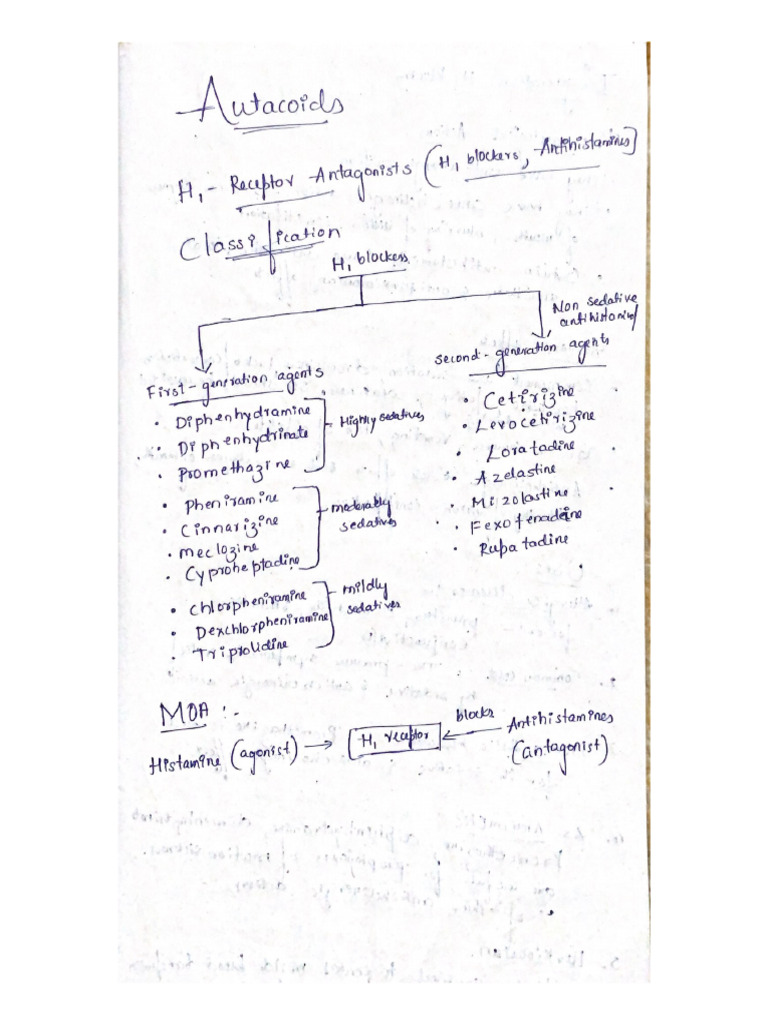 Autacoids
H₁ - Receptor Antagonists (H₁ blockers, Antihistamines)
Classification
H₁ blockers
Non sedative
antihistamines
First-generation agents
• Diphenhydramine
• Diphenhydrinate
• Promethazine
Highly sedatives
• Pheniramine
• Cinnarizine
• Meclozine
• Cyproheptadine
moderately
sedatives
• Chlorpheniramine
• Dexchlorpheniramine
• Triprolidine
mildly
sedatives
second-generation agents
• Cetirizine
• Levocetirizine
• Loratadine
• Azelastine
• Mizolastine
• Fexofenadine
• Rupatadine
MOA :-
Histamine (agonist) → H₁ receptor ← blocks Antihistamines
(antagonist)